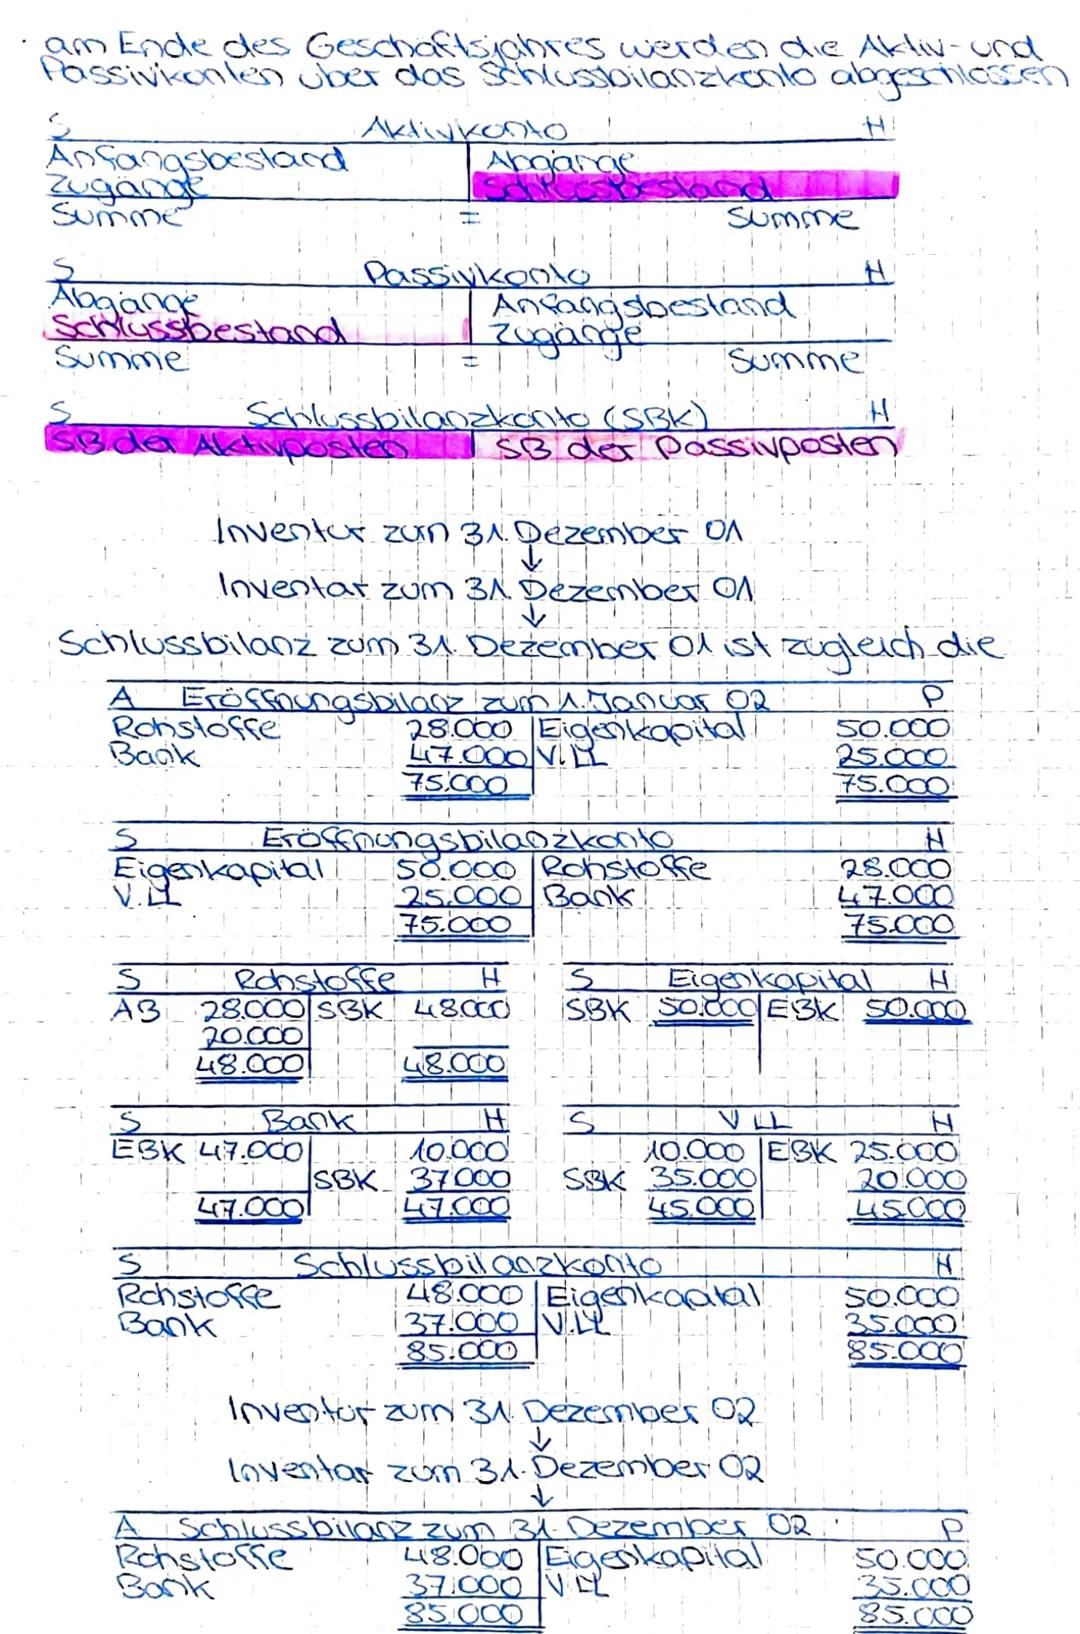 · am Ende des Geschäftsjahres werden die Aktiv- und
Passivkonten über das Schlussbilanzkonto abgeschlossen
S Aktivkonto H
Anfangsbestand Abgänge
Zugänge Schlussbestand
Summe = Summe
S Passivkonto H
Abgänge Anfangsbestand
Schlussbestand Zugänge
Summe = Summe
S Schlussbilanzkonto (SBK) H
SB der Aktivposten SB der Passivposten
Inventur zum 31. Dezember 01
↓
Inventar zum 31. Dezember 01
↓
Schlussbilanz zum 31. Dezember 01 ist zugleich die
A Eröffnungsbilanz zum 1. Januar 02 P
Rohstoffe 28.000 Eigenkapital 50.000
Bank 47.000 V.LL 25.000
75.000 75.000
S Eröffnungsbilanzkonto H
Eigenkapital 50.000 Rohstoffe 28.000
V.LL 25.000 Bank 47.000
75.000 75.000
S Rohstoffe H S Eigenkapital H
AB 28.000 SBK 48.000 SBK 50.000 EBK 50.000
20.000
48.000 48.000
S Bank H S VLL H
EBK 47.000 10.000 10.000 EBK 25.000
SBK 37.000 SBK 35.000 20.000
47.000 47.000 45.000 45.000
S Schlussbilanzkonto H
Rohstoffe 48.000 Eigenkapital 50.000
Bank 37.000 V.LL 35.000
85.000 85.000
Inventur zum 31. Dezember 02
↓
Inventar zum 31. Dezember 02
↓
A Schlussbilanz zum 31. Dezember 02 P
Rohstoffe 48.000 Eigenkapital 50.000
Bank 37.000 VLL 35.000
85.000 85.000